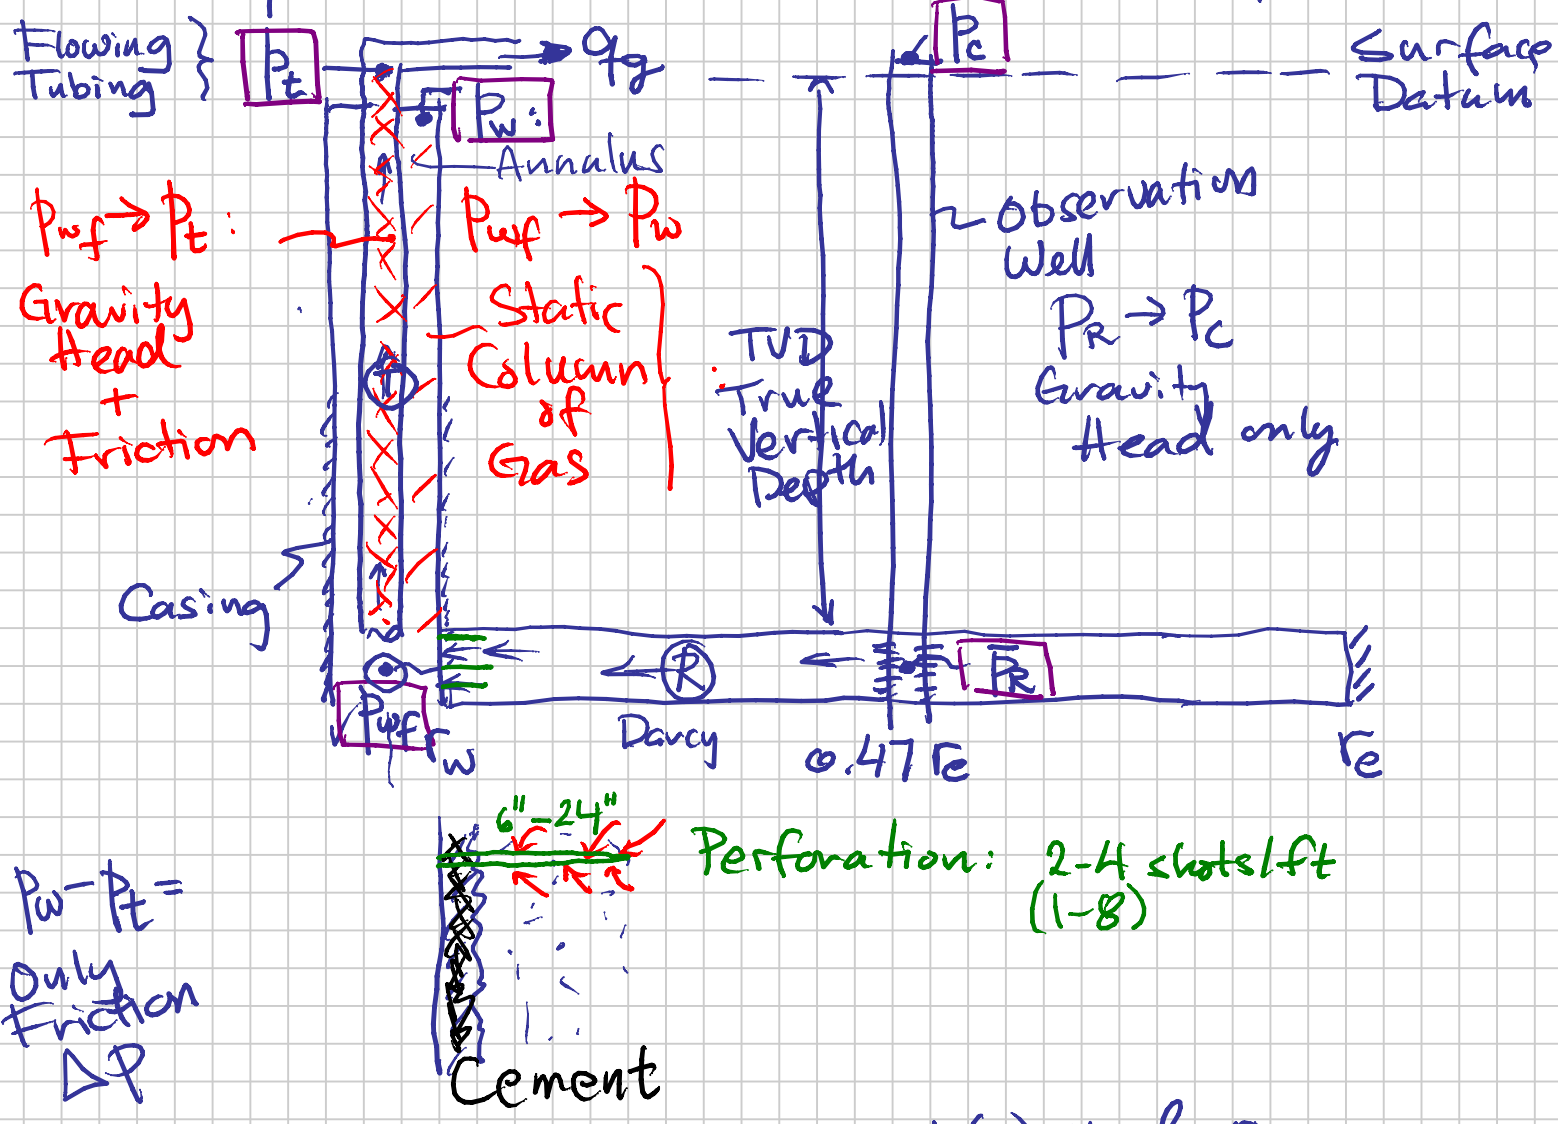 Flowing
Tubing
Pt
qg
Pc
Surface
Datum
Pw:
Annalus
Pwf → Pt:
Gravity
Head
+
Friction
Pwf → Pw
Static
Column
of
Gas
TVD
True
Vertical
Depth
Observation
Well
PR → Pc
Gravity
Head only
T
Casing
R
P̅R
Pwf
rw
Darcy
0.47 re
re
6" - 24"
Perforation: 2-4 shots/ft
(1-8)
Pw - Pt =
Only
Friction
ΔP
Cement